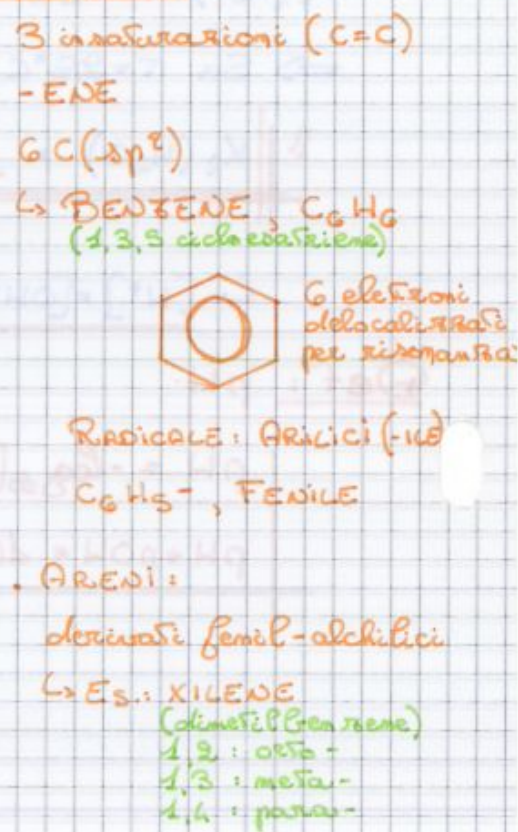 3 insaturazioni (C=C)
-ENE
6 C(sp²)
↳ BENZENE, C₆H₆
(1,3,5 cicloesatriene)
6 elettroni
delocalizzati
per risonanza
RADICALE: ARILICI (-ILE)
C₆H₅-, FENILE
. ARENI:
derivati fenil-alchilici
↳ ES.: XILENE
(dimetilbenzene)
1,2 : orto-
1,3 : meta-
1,4 : para-